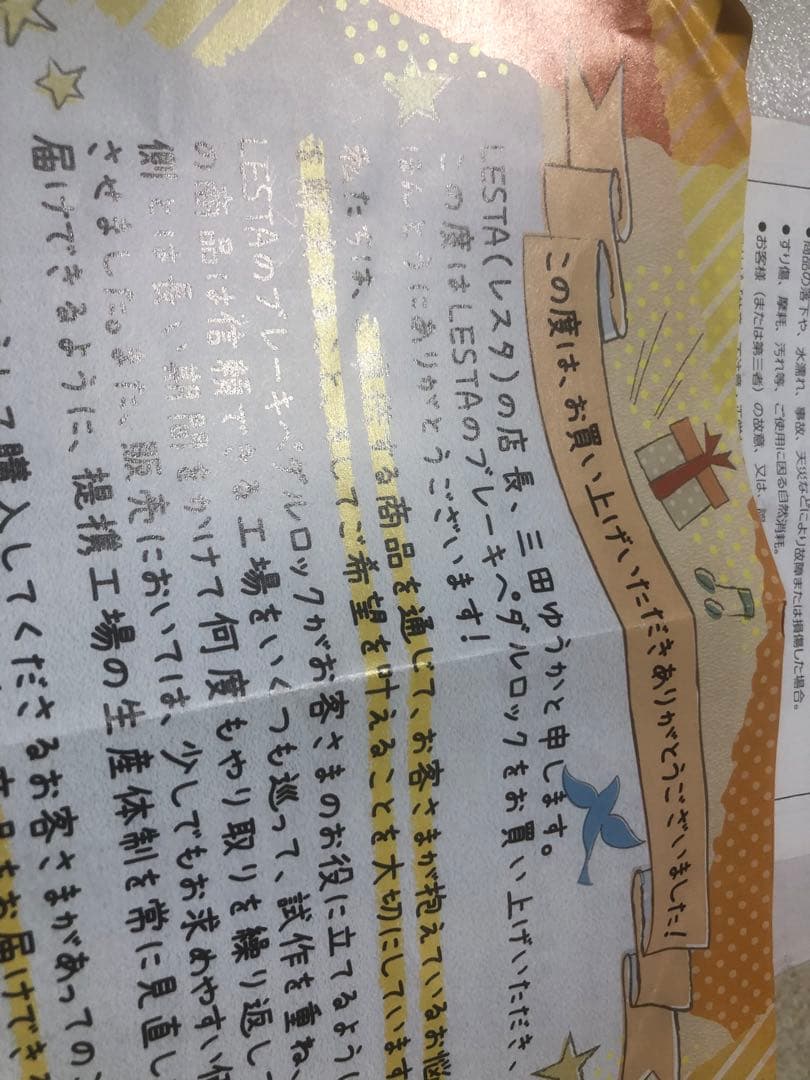 この度は、お買い上げいただきありがとうございました!
LESTA(レスタ)の店長、三田ゆうかと申します。
この度はLESTAのブレーキペダルロックをお買い上げいただき、
ほんとうにありがとうございます!
私たちは、提供する商品を通じて、お客さまが抱えているお悩
してご希望を叶えることを大切にしています
LESTAのブレーキペダルロックがお客さまのお役に立てるように
信頼できる工場をいくつも巡って、試作を重ね、
の商品は長い期間をかけて何度もやり取りを繰り返し
側とは させました。また、販売においては、少しでもお求めやすい価
届けできるように、提携工場の生産体制を常に見直し
して購入してくださるお客さまがあっての
商品をお届けでき
商品の落下や、水濡れ、事故、天災などにより故障または損傷した場合。
●すり傷、摩耗、汚れ等、ご使用に因る自然消耗。
●お客様(または第三者)の故意、又は、